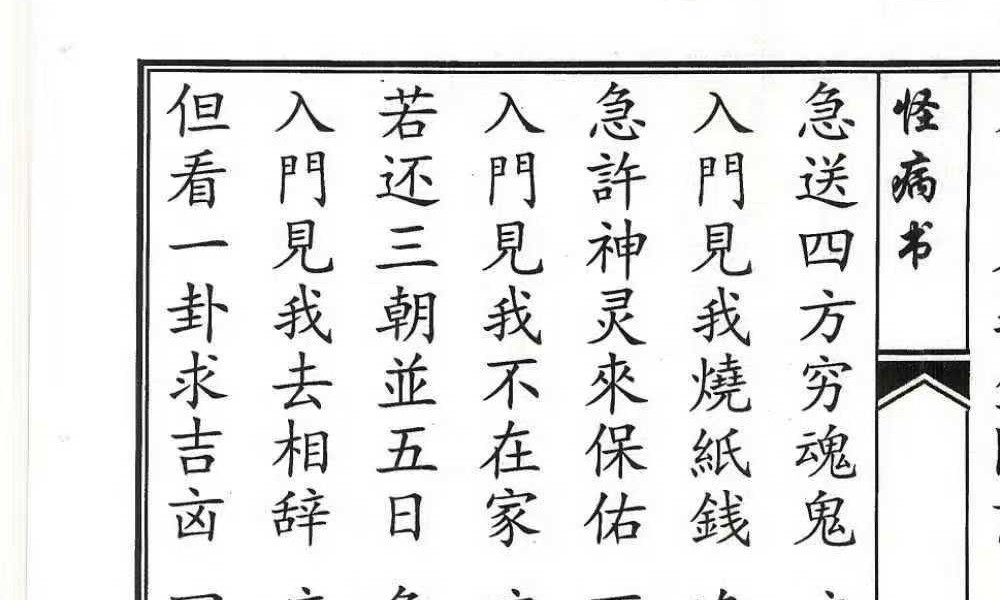 怪病书
急送四方穷魂鬼
入門見我燒紙銭
急許神灵來保佑
入門見我不在家
若还三朝並五日
入門見我去相辞
但看一卦求吉㐫